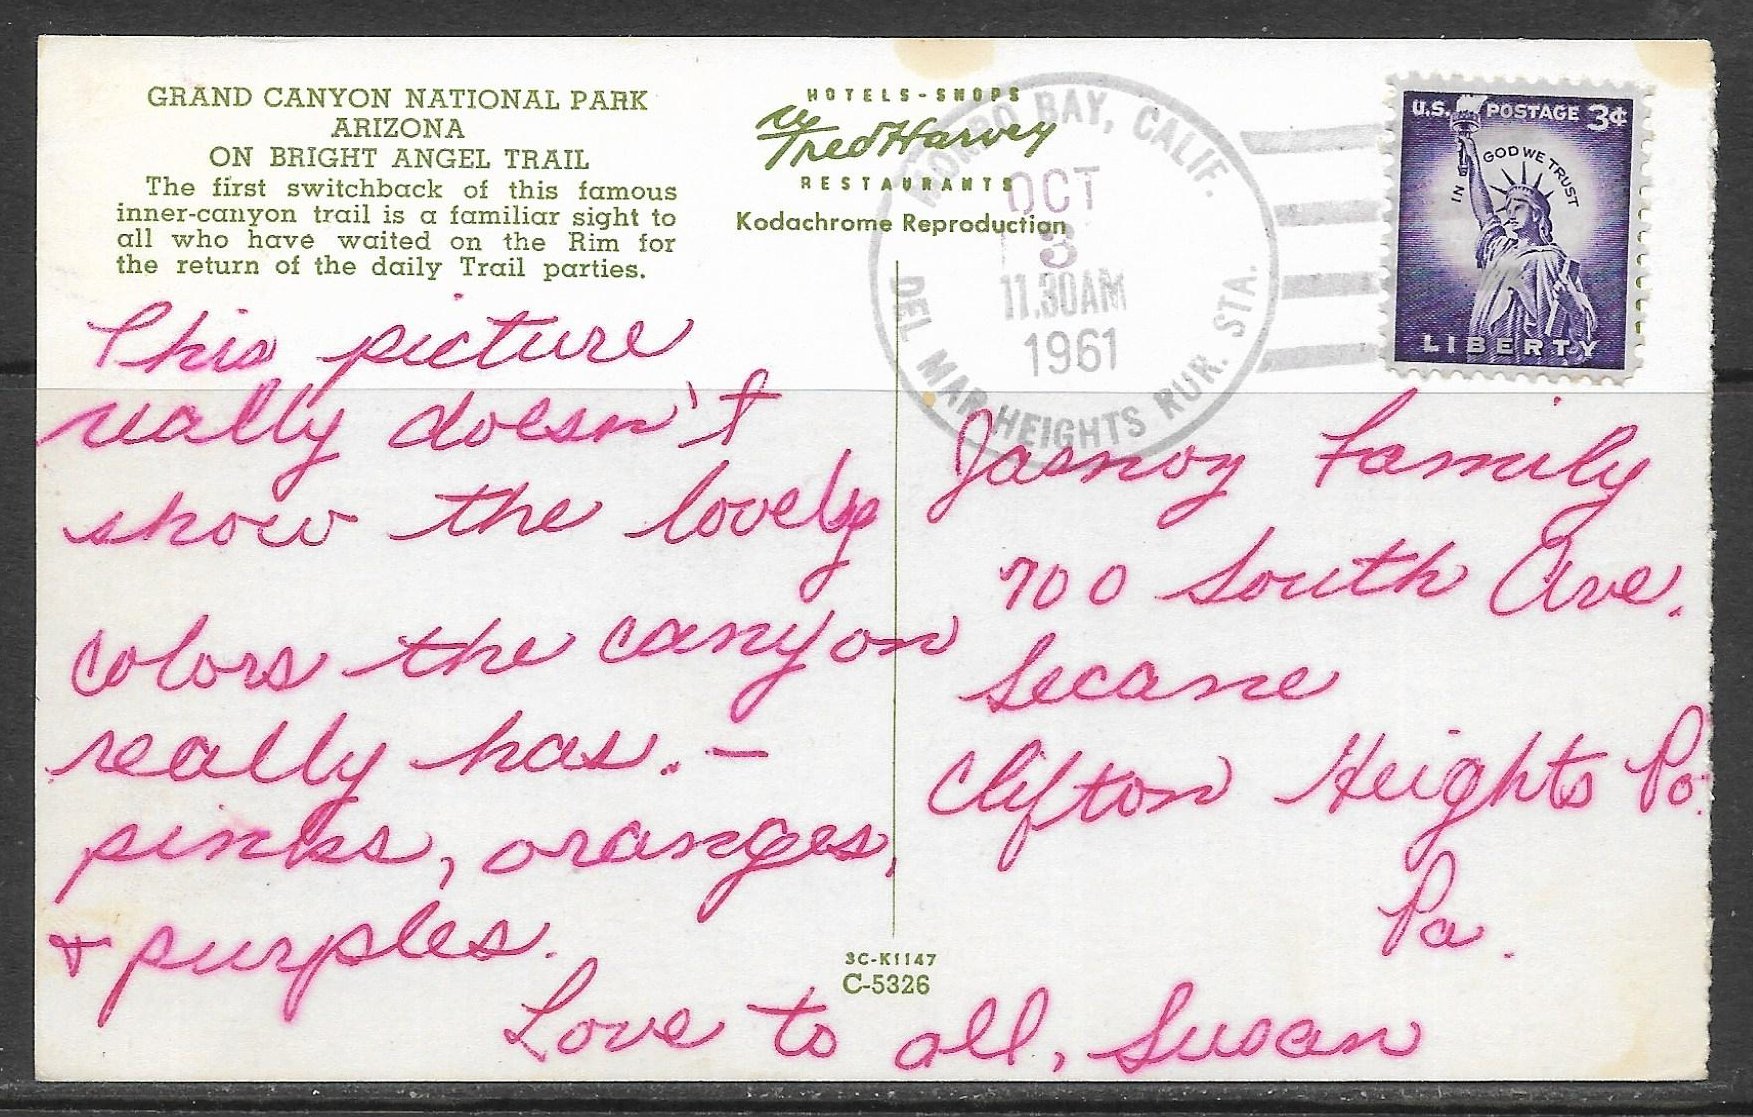 GRAND CANYON NATIONAL PARK
ARIZONA
ON BRIGHT ANGEL TRAIL
The first switchback of this famous
inner-canyon trail is a familiar sight to
all who have waited on the Rim for
the return of the daily Trail parties.
HOTELS-SHOPS
Fred Harvey
RESTAURANTS
Kodachrome Reproduction
MORRO BAY, CALIF.
OCT
3
11.30AM
1961
DEL MAR HEIGHTS RUR. STA.
U.S. POSTAGE 3¢
IN GOD WE TRUST
LIBERTY
This picture
really doesn't
show the lovely
colors the canyon
really has. —
pinks, oranges,
+ purples.
Love to all, Susan
Family
700 South Ave.
Secane
Clifton Heights Po.
Pa.
3C-K1147
C-5326